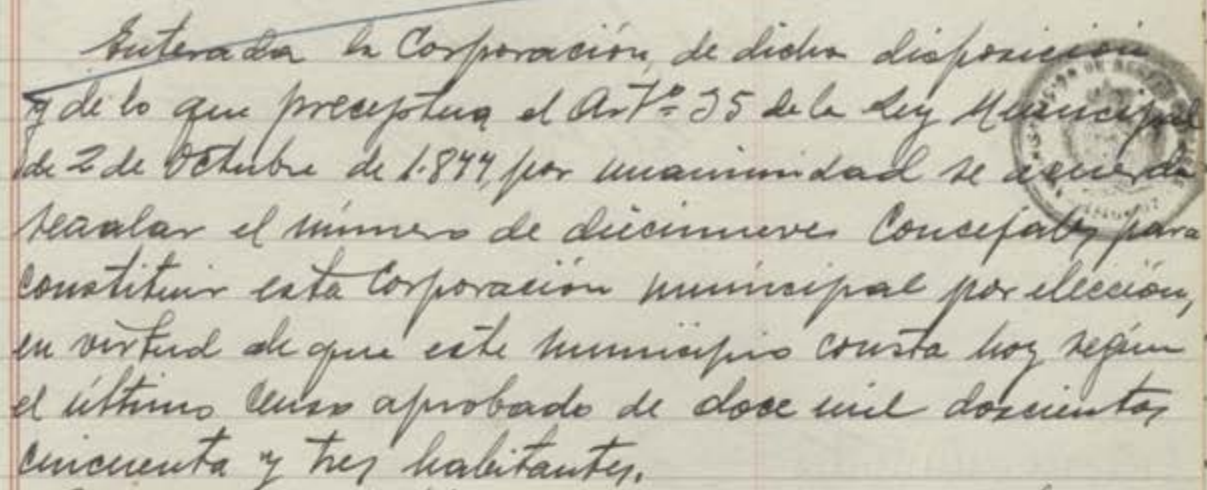 Enterada la Corporación, de dicha disposición
y de lo que preceptua el Artº 35 de la Ley Municipal
de 2 de Octubre de 1.877, por unanimidad se acuerda
señalar el número de diecinueve Concejales para
constituir esta Corporación municipal por elección,
en virtud de que este municipio consta hoy según
el último censo aprobado de doce mil doscientos
cincuenta y tres habitantes.